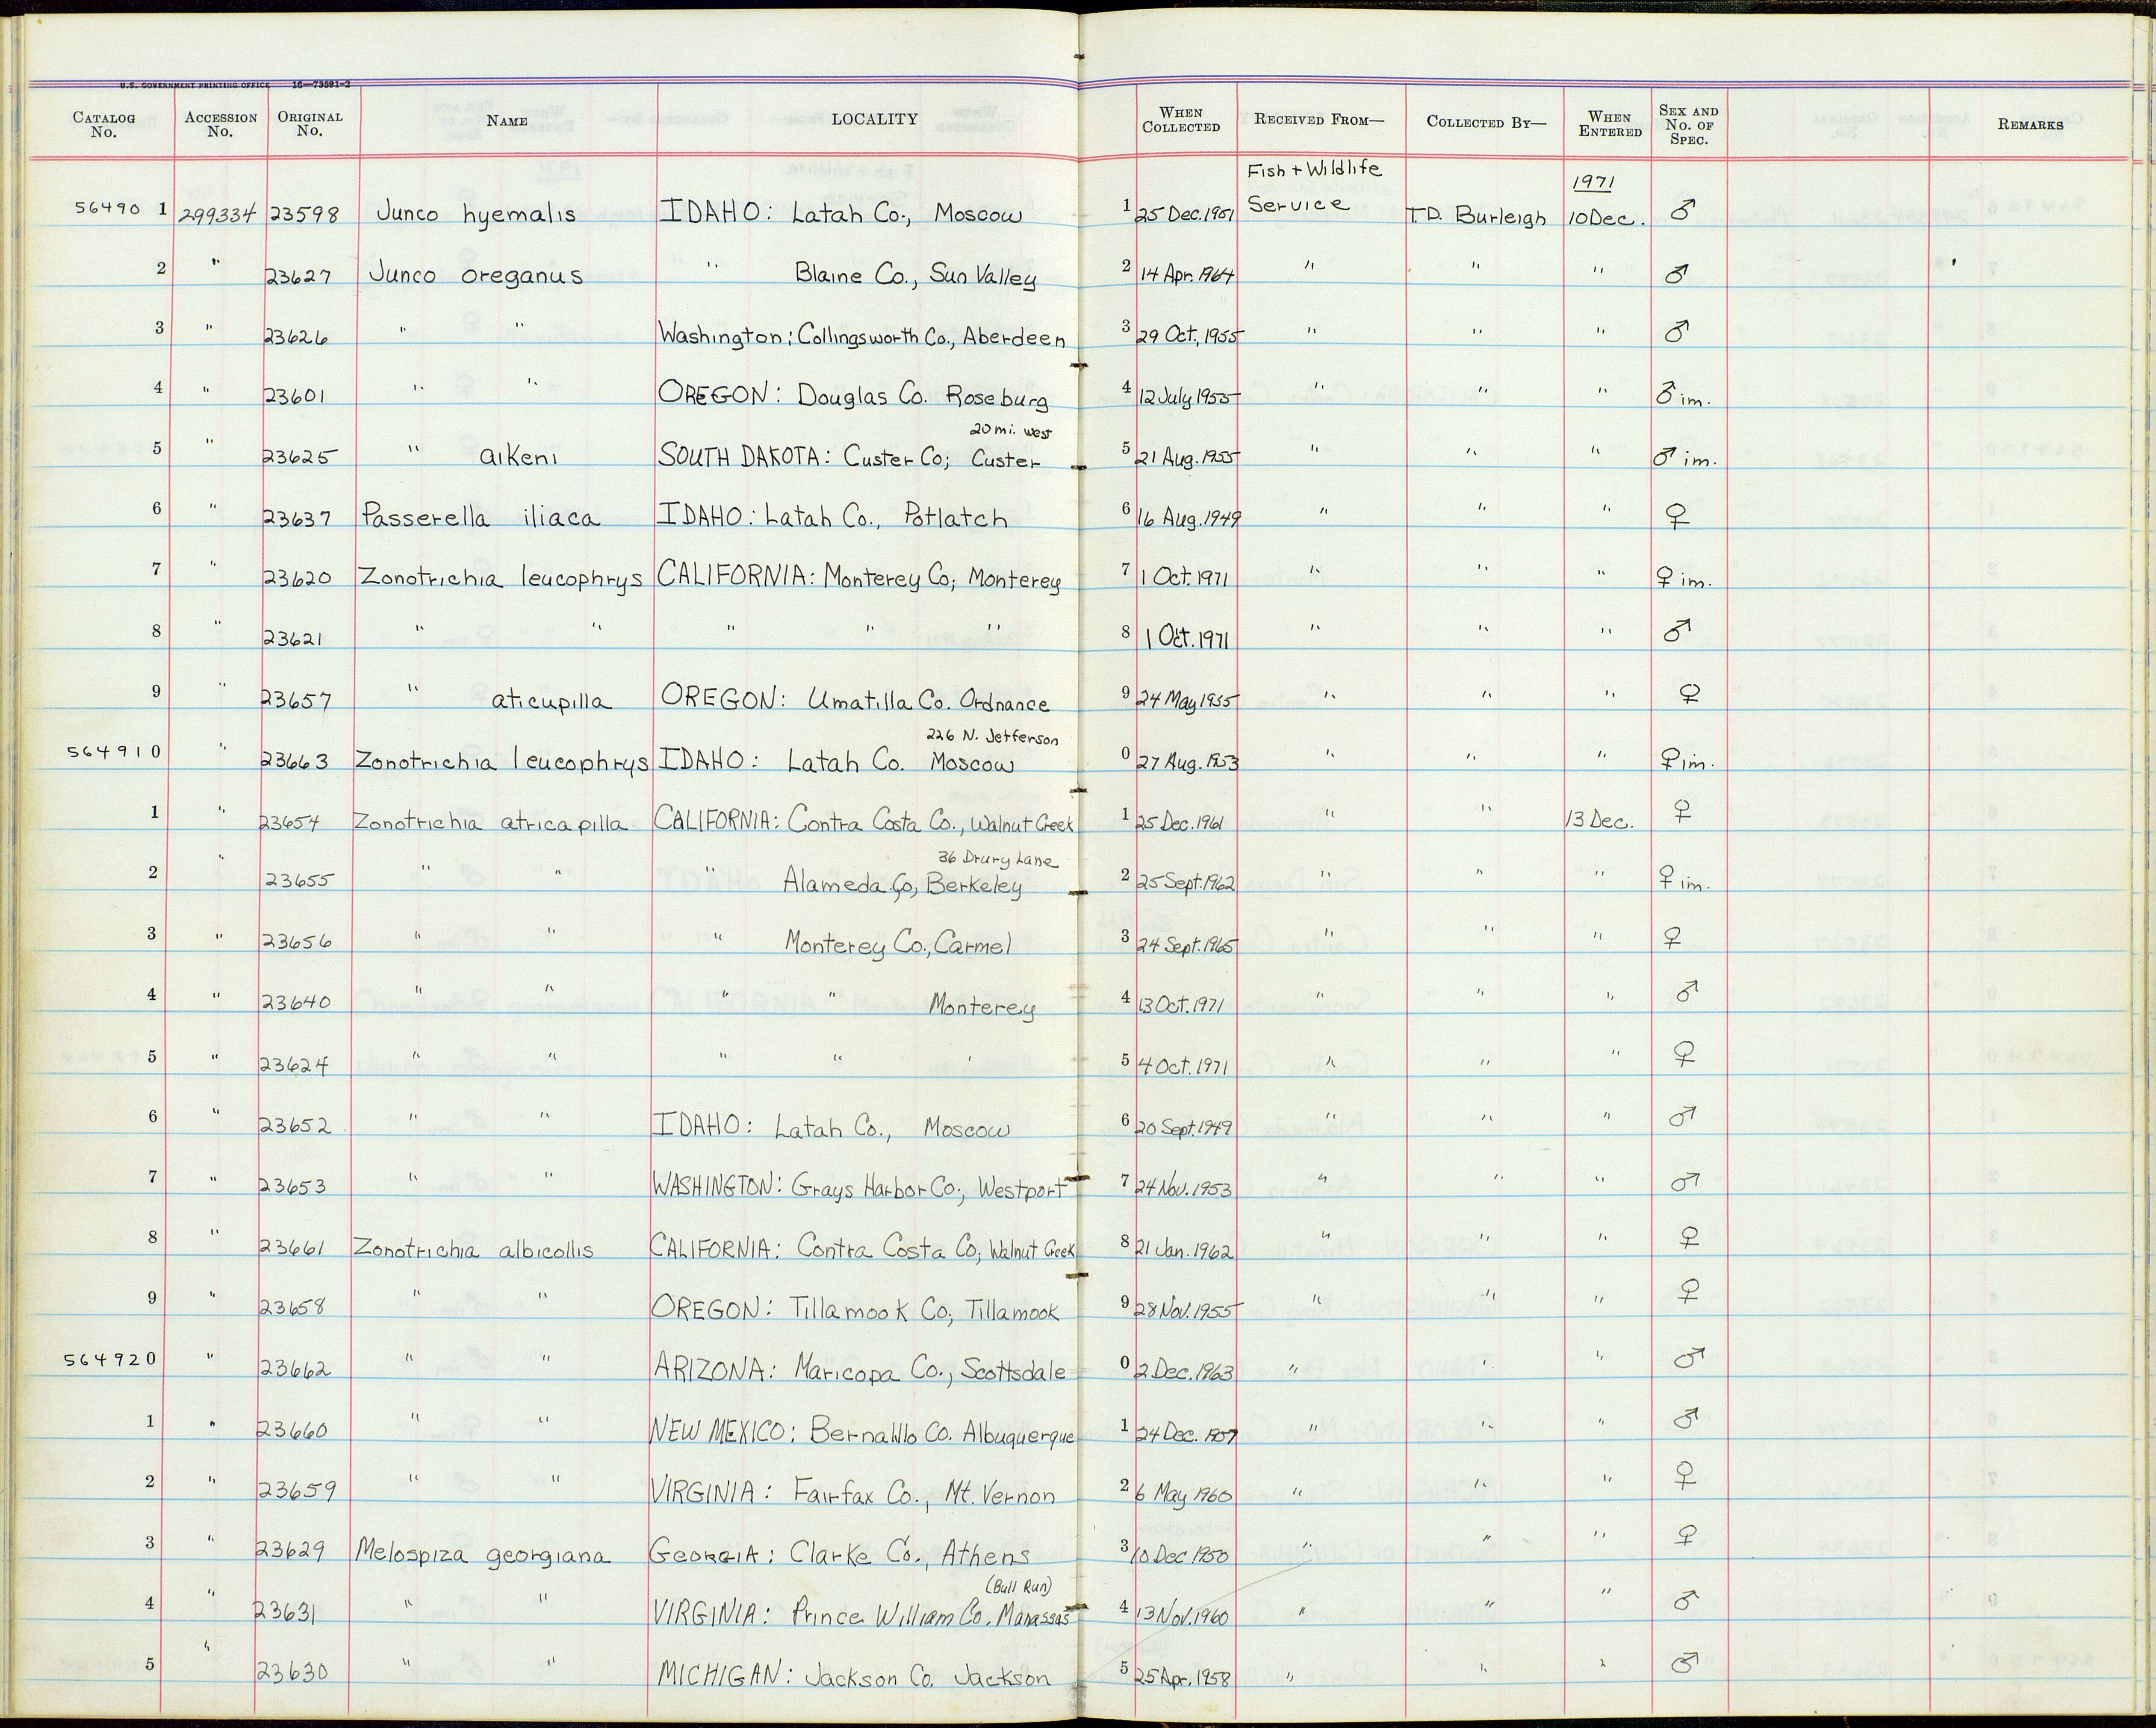 U.S. GOVERNMENT PRINTING OFFICE 16—73591-2
CATALOG No. ACCESSION No. ORIGINAL No. NAME LOCALITY WHEN COLLECTED RECEIVED FROM— COLLECTED BY— WHEN ENTERED SEX AND No. OF SPEC. REMARKS
Fish + Wildlife 1971
56490 1 299334 23598 Junco hyemalis IDAHO: Latah Co., Moscow 1 25 Dec. 1951 Service T.D. Burleigh 10 Dec. ♂
2 " 23627 Junco oreganus " Blaine Co., Sun Valley 2 14 Apr. 1964 " " " ♂
3 " 23626 " " Washington; Collingsworth Co., Aberdeen 3 29 Oct., 1955 " " " ♂
4 " 23601 " " OREGON: Douglas Co. Roseburg 4 12 July 1955 " " " ♂ im.
20 mi. west
5 " 23625 " aikeni SOUTH DAKOTA: Custer Co; Custer 5 21 Aug. 1955 " " " ♂ im.
6 " 23637 Passerella iliaca IDAHO: Latah Co., Potlatch 6 16 Aug. 1949 " " " ♀
7 " 23620 Zonotrichia leucophrys CALIFORNIA: Monterey Co; Monterey 7 1 Oct. 1971 " " " ♀ im.
8 " 23621 " " " " " 8 1 Oct. 1971 " " " ♂
9 " 23657 " aticupilla OREGON: Umatilla Co. Ordnance 9 24 May 1955 " " " ♀
226 N. Jefferson
564910 " 23663 Zonotrichia leucophrys IDAHO: Latah Co. Moscow 0 27 Aug. 1953 " " " ♀ im.
1 " 23654 Zonotrichia atricapilla CALIFORNIA: Contra Costa Co., Walnut Creek 1 25 Dec. 1961 " " 13 Dec. ♀
36 Drury Lane
2 " 23655 " " " Alameda Co, Berkeley 2 25 Sept. 1962 " " " ♀ im.
3 " 23656 " " " Monterey Co., Carmel 3 24 Sept. 1965 " " " ♀
4 " 23640 " " " " Monterey 4 13 Oct. 1971 " " " ♂
5 " 23624 " " " " ' 5 4 Oct. 1971 " " " ♀
6 " 23652 " " IDAHO: Latah Co., Moscow 6 20 Sept. 1949 " " " ♂
7 " 23653 " " WASHINGTON: Grays Harbor Co., Westport 7 24 Nov. 1953 " " " ♂
8 " 23661 Zonotrichia albicollis CALIFORNIA: Contra Costa Co; Walnut Creek 8 21 Jan. 1962 " " " ♀
9 " 23658 " " OREGON: Tillamook Co, Tillamook 9 28 Nov. 1955 " " " ♀
564920 " 23662 " " ARIZONA: Maricopa Co., Scottsdale 0 2 Dec. 1963 " " " ♂
1 " 23660 " " NEW MEXICO: Bernalillo Co. Albuquerque 1 24 Dec. 1957 " " " ♂
2 " 23659 " " VIRGINIA: Fairfax Co., Mt. Vernon 2 6 May 1960 " " " ♀
3 " 23629 Melospiza georgiana GEORGIA: Clarke Co., Athens 3 10 Dec 1950 " " " ♀
(Bull Run)
4 " 23631 " " VIRGINIA: Prince William Co. Manassas 4 13 Nov. 1960 " " " ♂
5 " 23630 " " MICHIGAN: Jackson Co. Jackson 5 25 Apr. 1958 " " " ♂